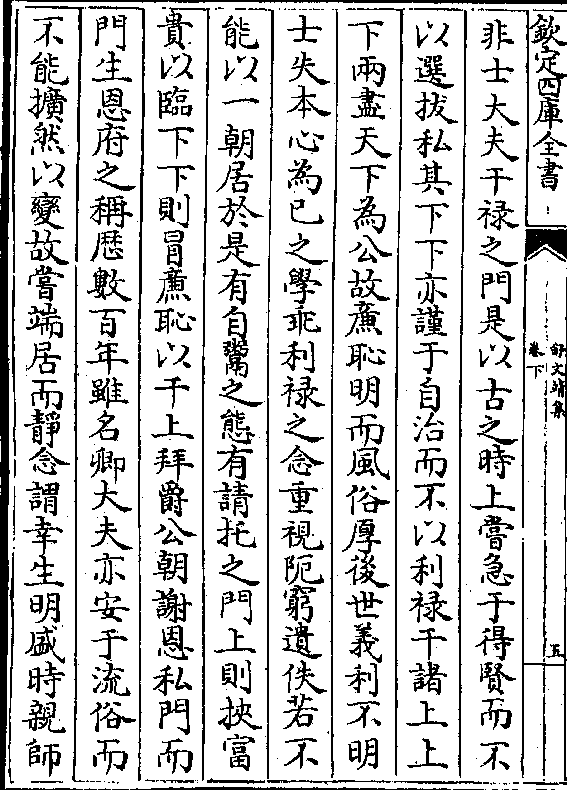 欽定四庫全書
舒文靖集
卷下
五
非士大夫干禄之門是以古之時上嘗急于得賢而不
以選拔私其下下亦謹于自治而不以利禄干諸上上
下兩盡天下為公故廉恥明而風俗厚後世義利不明
士失本心為已之學乖利禄之念重視阨窮遺佚若不
能以一朝居於是有自鬻之態有請托之門上則挾富
貴以臨下下則冐廉恥以干上拜爵公朝謝恩私門而
門生恩府之稱歴數百年雖名卿大夫亦安于流俗而
不能擴然以變故嘗端居而靜念謂幸生明盛時親師